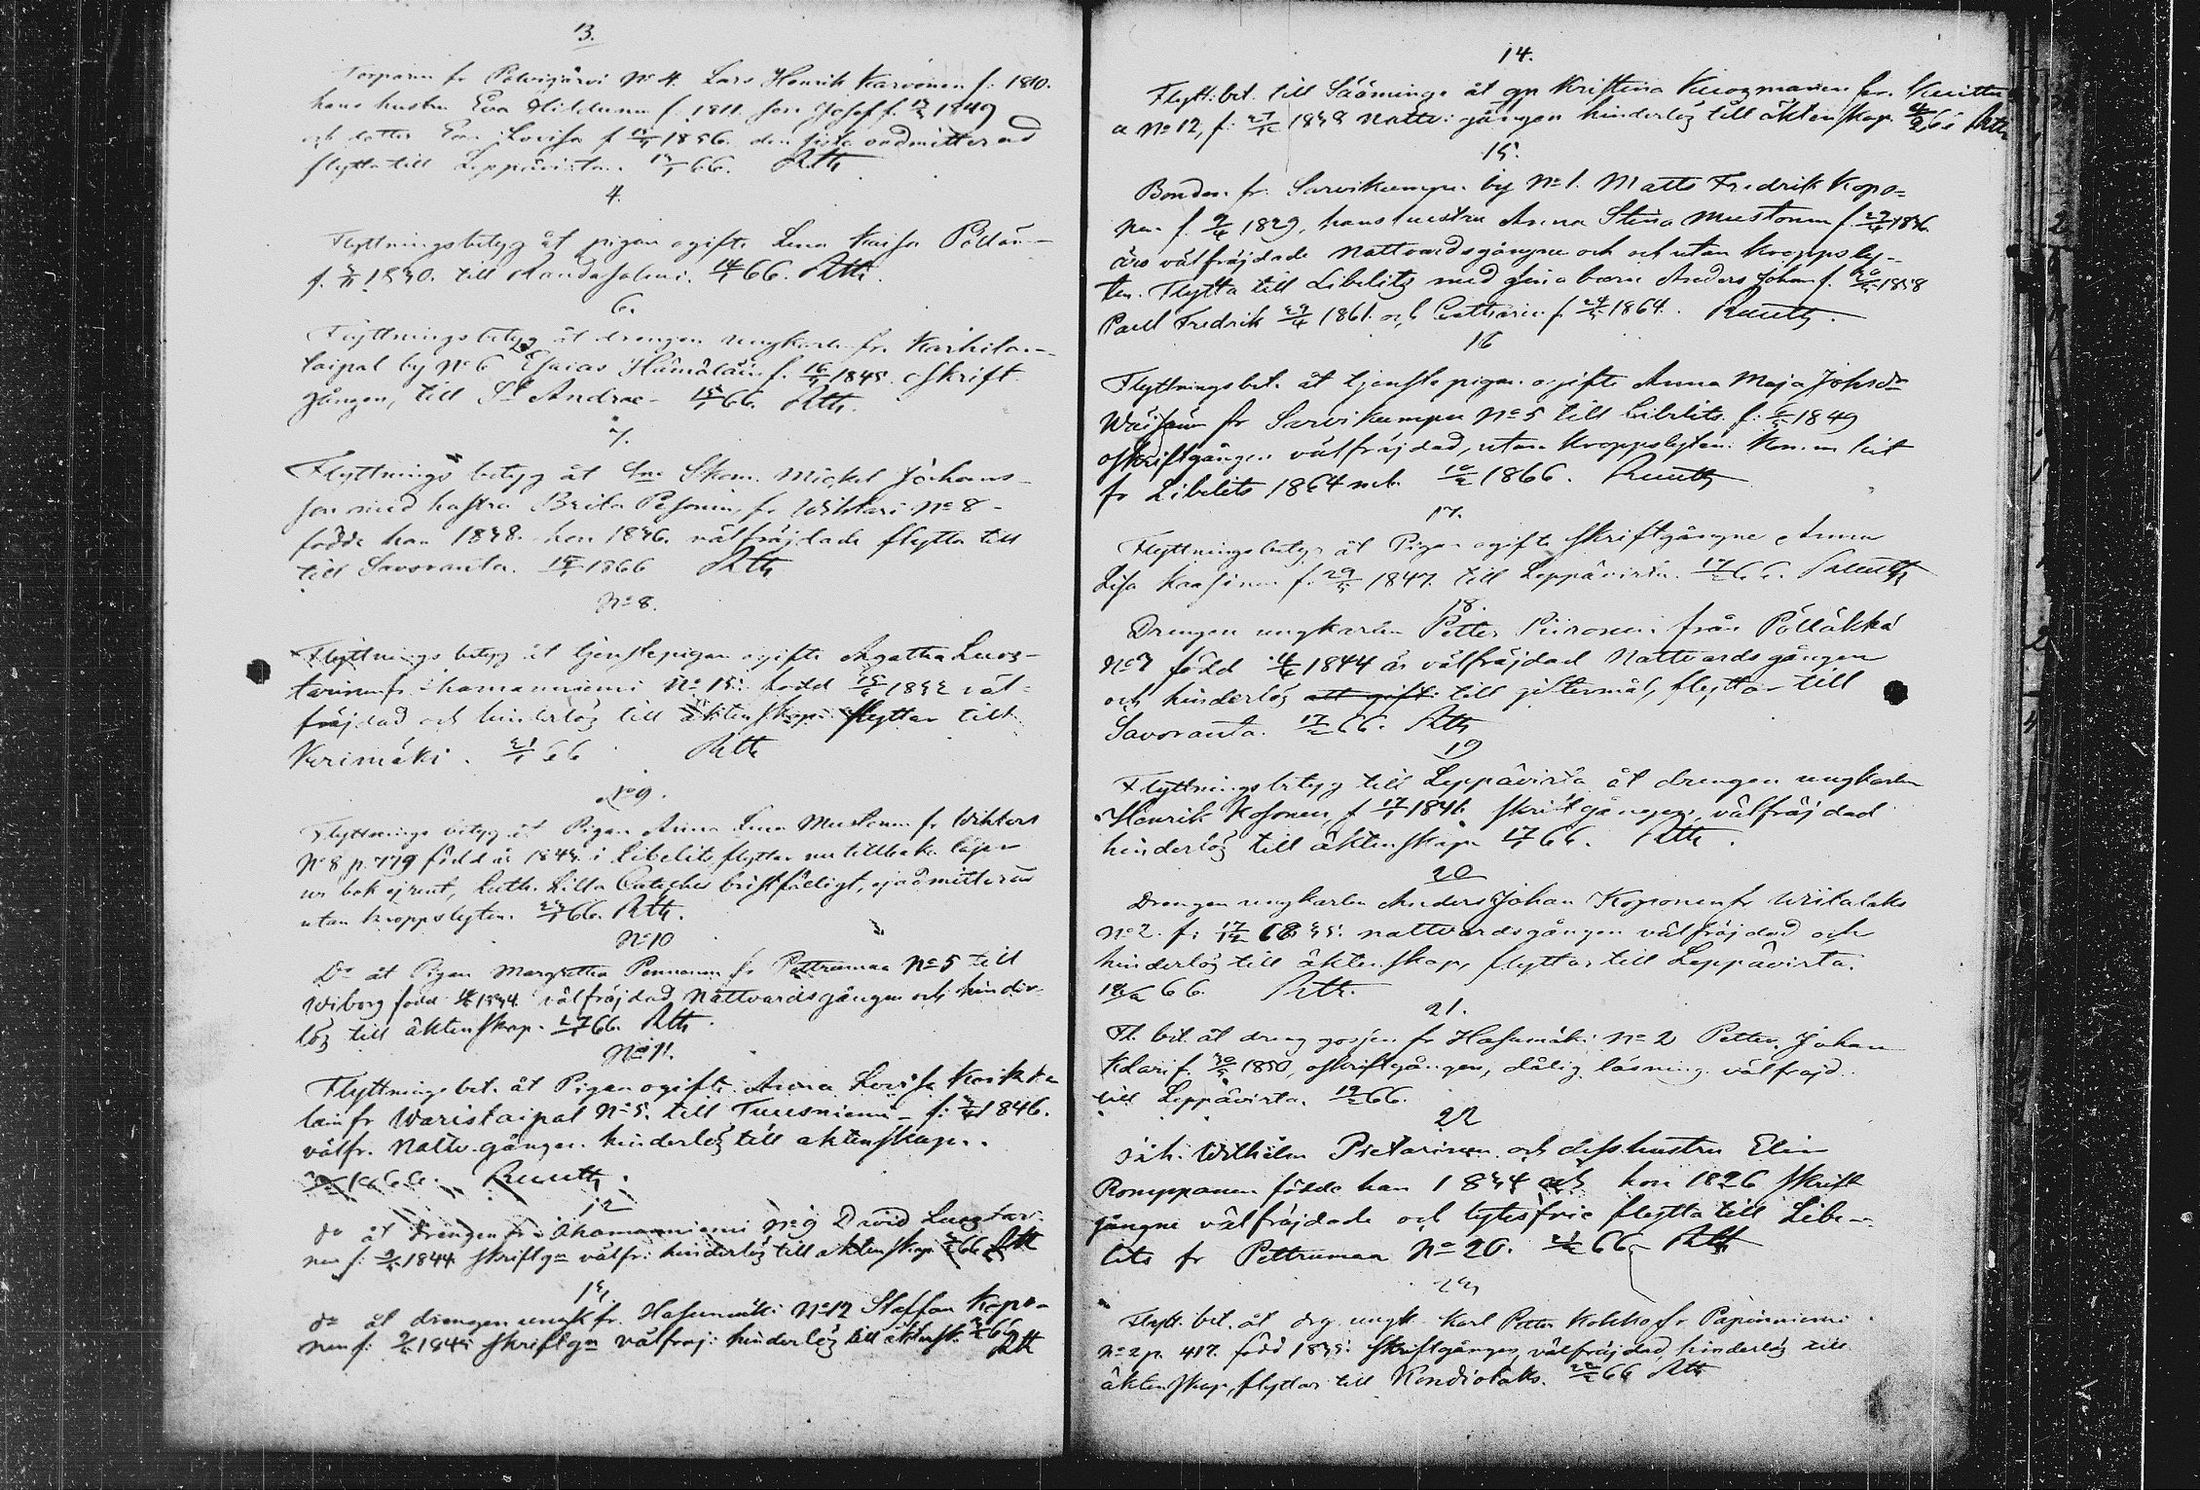 3.
Torparen fr Polvijärvi No 4. Lars Henrik Karvonen f. 1810.
hans hustru Eva Hildunen f. 1811. son Josef f. 1849
och dotter Eva Lovisa f 1856. den sista oadmitterad
flytta till Leppävirta. 66. Rth
4.
Flyttningsbetyg åt pigan ogifta Lena Kaisa Pöllän
f. 1840. till Randasalmi. 14/1 66. Rth.
6.
Flyttningsbetyg åt drengen ungkarlen fr. Karhilan-
taipal by No 6 Esaias Hämäläin f. 16/1 1845. Skrift
gången, till St Andrae- 15/1 66. Rth.
7.
Flyttnings betyg åt Skom. Mickel Johans-
son med hustru Brita Pesonin, fr Wihtari No 8-
födde han 1838. hon 1836. välfräjdade flytta till
till Savoranta. 1866 Rth
No 8.
Flyttnings betyg åt tjenstepigan ogifta Agatha Luos-
tarinen fr. Ihamanniemi No 15. född 1842 väl-
fräjdad och hinderlös till äktenskap flyttar till
Kerimäki. 21/1 66 Rth
No 9.
Flyttnings betyg åt Pigan Anna Lena Mustonen fr Wihtari
No 8, p. 779 född år 1843. i Libelits flyttar nu tillbaka läser
ur bok ej rent, Luth. Lilla Cateches bristfälligt, ej admitterad
utan kroppslyten. 66. Rth.
No 10
Do åt Pigan Margretha Pennanen fr Pettrumaa No 5 till
Wiborg född 1844. välfräjdad Nattvardsgången och hinder-
lös till äktenskap. 27/1 66. Rth.
No 11.
Flyttningsbet. åt Pigan ogifta Anna Lovisa Kosikka
lain fr Waristaipal No 5. till Tuusniemi - f. 1846.
välfr. Nattv.gången. hinderlös till äktenskap.
1866. Ruuth.
12
do åt Drengen fr. Ihamanniemi No 9 David Luostar-
nen f. 1844 skriftgn välfr. hinderlös till äktenskap 66 Rth
13.
do åt drengen ungk fr. Hasumäki No 12 Staffan Kopo-
nen f. 1845 skriftgn välfräj: hinderlös till äktensk. 66 Rth
14.
Flytt. bet. till Sääminge åt gp Kristina Kuosmanen fr. Kuittu
a No 12, f. 27/12 1838 Nattv: gången hinderlös till äktenskap 66 Rth
15.
Bonden fr. Sarvikumpu by No 1. Matts Fredrik Kopo=
nen f. 1829, hans hustru Anna Stina Mustonen f. 1836
äro välfräjdade Nattvardsgångna och och utan kroppsly-
ten. Flytta till Libelitz med sina barn Anders Johan f. 1858
Paul Fredrik 29/4 1861. och Catharin f 24/5 1864. Ruuth.
16
Flyttningsbet. åt tjenstepigan ogifta Anna Maja Johsdr
Wäisäin fr Sarvikumpu No 5 till Libelits. f. 1849
oskriftgången välfräjdad, utan kroppslyten. Kommen hit
fr Libelits 1864 m.b. 10/2 1866. Ruuth
17.
Flyttningsbetyg åt Pigan ogifta skriftgångne Anna
Lisa Kaasinen f. 29/5 1847. till Leppävirta. 17/2 66. Ruuth
18.
Drengen ungkarlen Petter Piironen från Pölläkkä
No 7 född 1844 är välfräjdad Nattvardsgången
och hinderlös att gift till giftermål, flyttar till
Savoranta. 17/2 66. Rth
19
Flyttningsbetyg till Leppävirta åt drengen ungkarlen
Henrik Kosonen f 17/1 1841. skriftgången, välfräjdad
hinderlös till äktenskap 17/2 66. Rth.
20
Drengen ungkarlen Anders Johan Koponen fr Wiitalaks
No 2. f. nattvardsgången välfräjdad och
hinderlös till äktenskap, flyttar till Leppävirta.
18/2 66. Rth.
21.
Fl. bet. åt dreng gossen fr Hasumäki No 2 Petter Johan
Klari f. 30/5 1850, oskriftgången, dålig läsning. välfräjd.
till Leppävirta. 19/2 66.
22
Joh. Wilhelm Pietarinen och dess hustru Elin
Romppanen födde han 1834 och hon 1826 skrift
gångne välfräjdade och lytesfrie flytta till Libe-
lits fr Pettrumaa No 20. 21/2 66 Rth
23
Flytt. bet. åt drg. ungk. Karl Petter Kokko fr Papinniemi
No 2 p. 417. född 1835. skriftgången, välfräjdad, hinderlös till
äktenskap, flyttar till Kondiolaks. 22/2 66 Rth